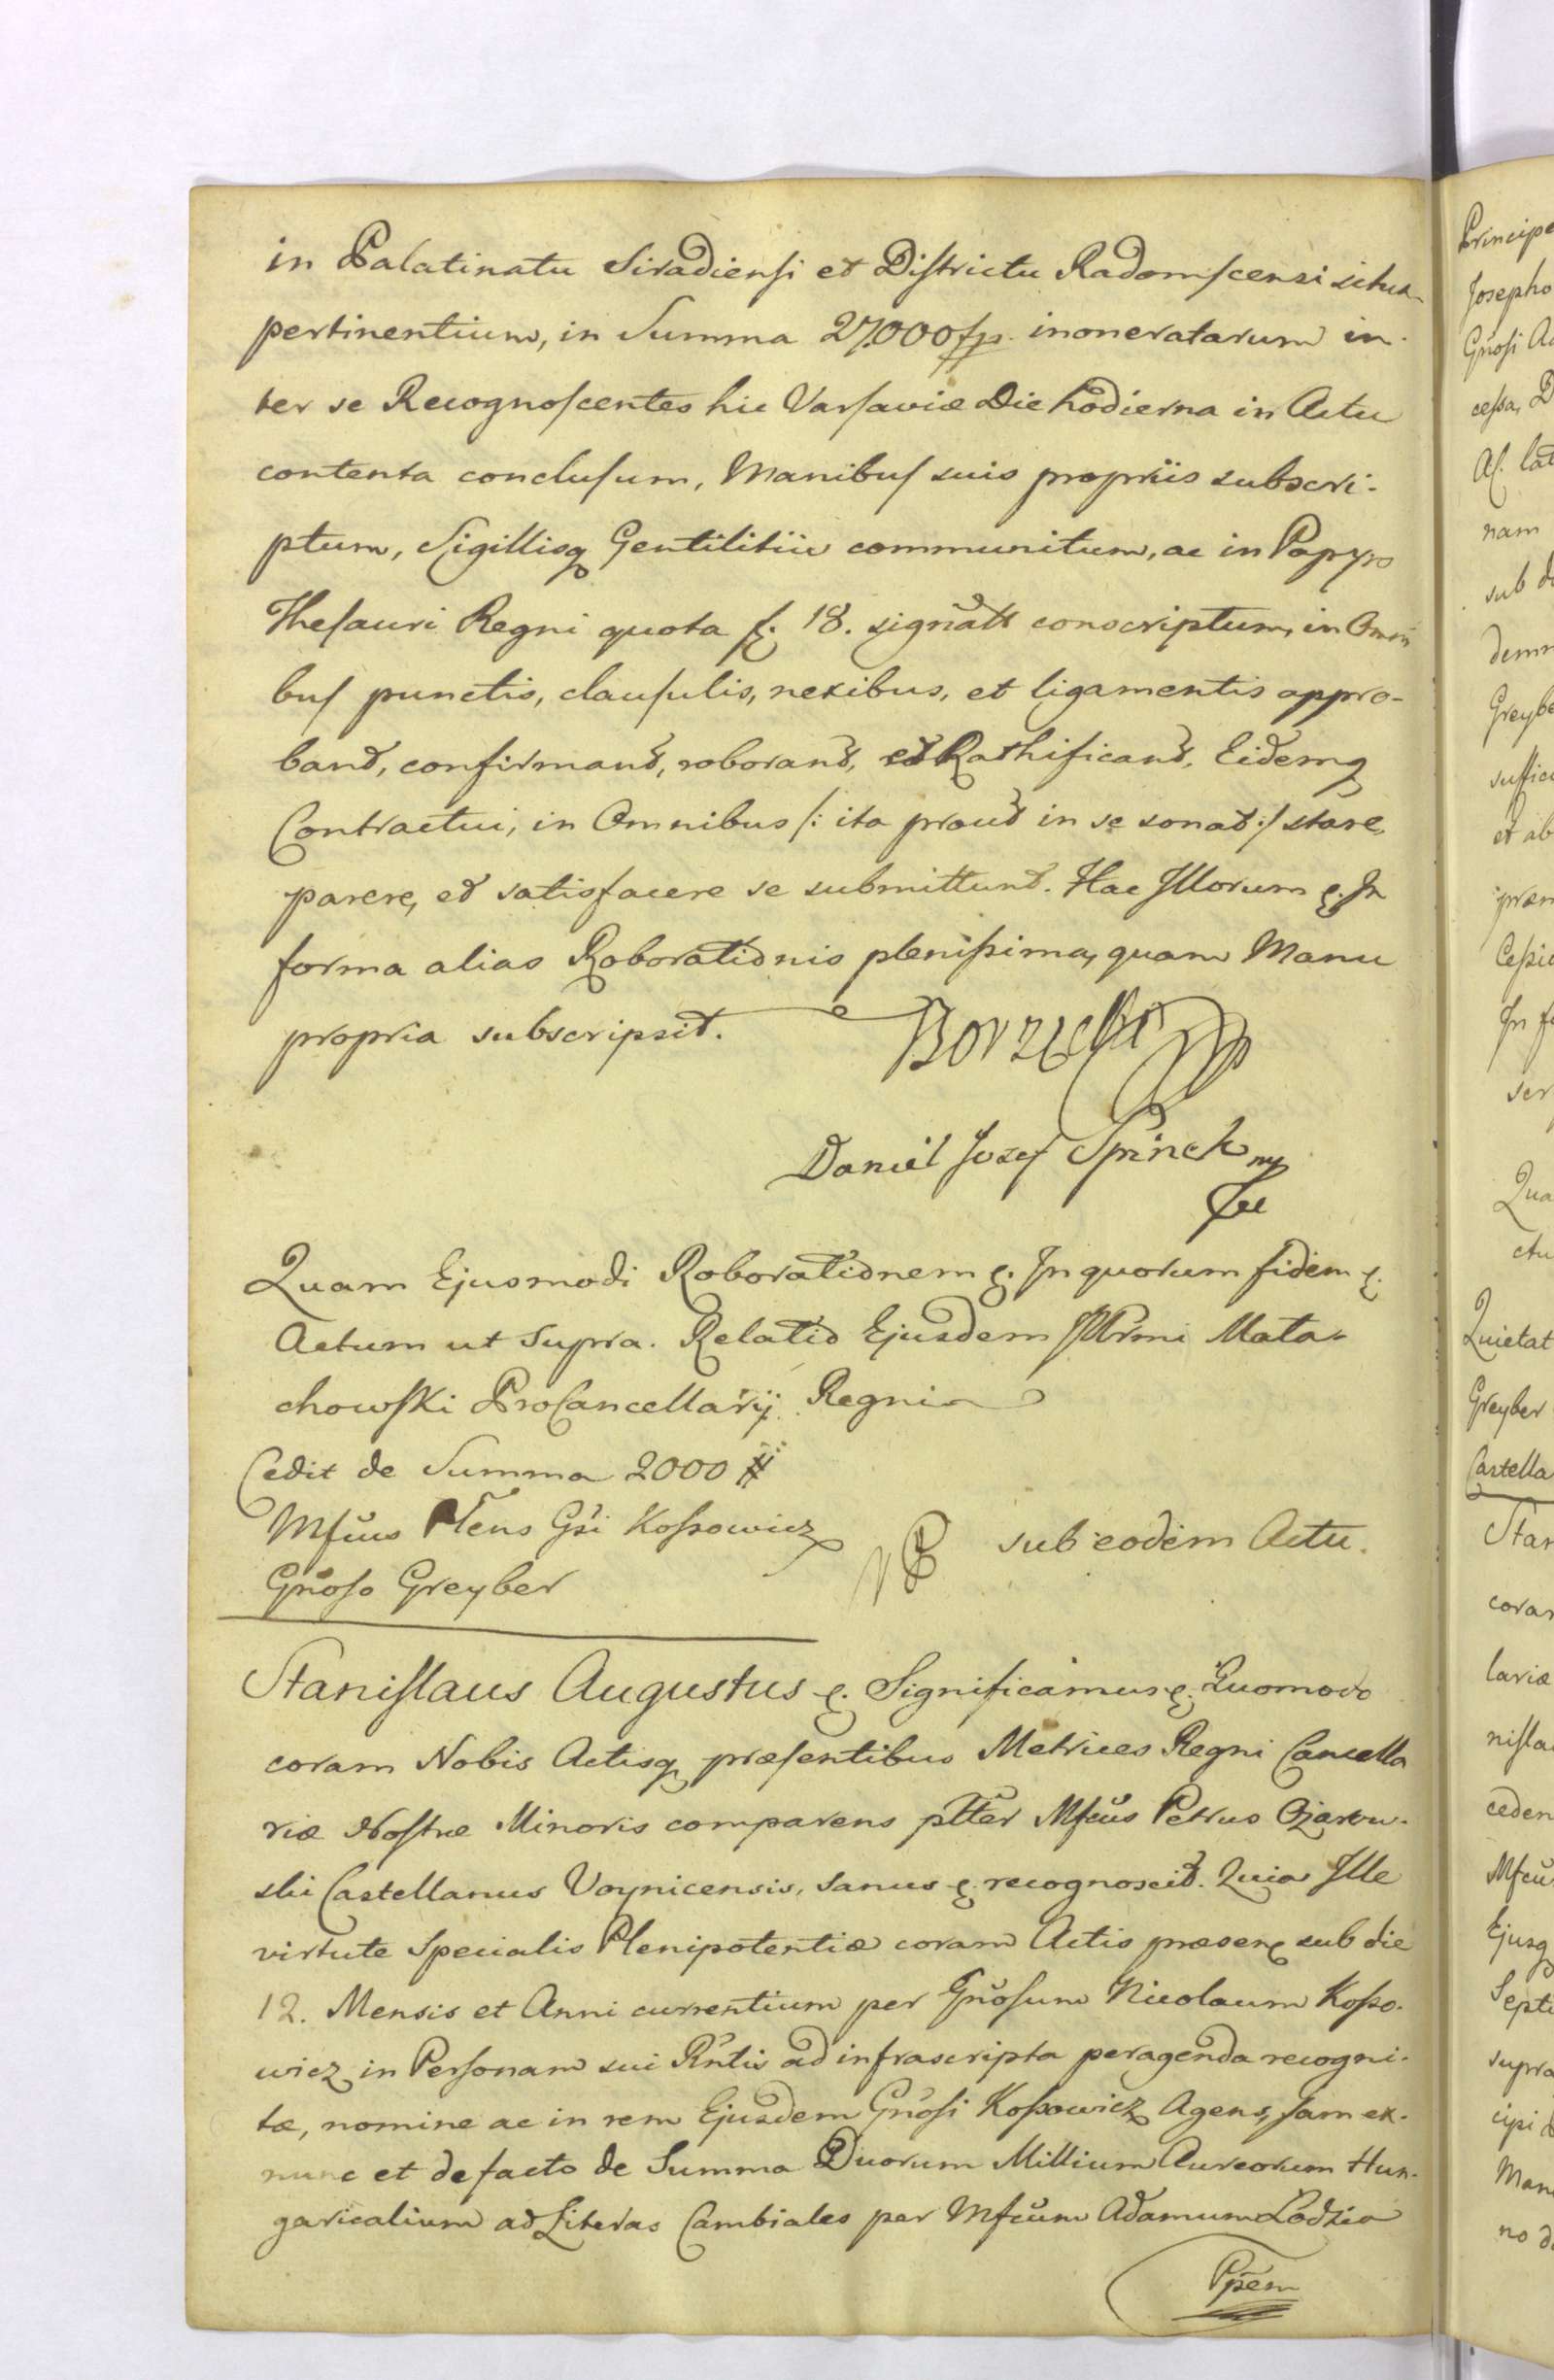 in Palatinatu Siradiensi et Districtu Radomscensi situa-
pertinentium, in Summa 27.000 fp. inoneratarum in-
ter se Recognoscentes hic Varsaviæ Die hodierna in Actu
contenta conclusum, Manibus suis propriis subscri-
ptum, Sigillisq Gentilitiis communitum, ac in Papyro
Thesauri Regni quota f. 18. signatt conscriptum, in Omni
bus punctis, clausulis, nexibus, et ligamentis appro-
band, confirmand, roborand, et Rathificand, Eidemq
Contractui, in Omnibus /: ita prout in se sonat :/ stare,
parere, et satisfacere se submittunt. Hac Illorum &. In
forma alias Roborationis plenissima, quam Manu
propria subscripsit. Borzęcki
Daniel Jozef Spinek mp
Quam Ejusmodi Roborationem &. In quorum fidem &.
Actum ut Supra. Relatio Ejusdem Illrmi Mała-
chowski ProCancellarij Regni
Cedit de Summa 2000 #
Mfcus Plens Gsi Kossowicz
Gnoso Greyber
sub eodem Actu.
Stanislaus Augustus &. Significamus &. Quomodo
coram Nobis Actisq præsentibus Metrices Regni Cancella
riæ Nostræ Minoris comparens pltter Mfcus Petrus Ożarow-
ski Castellanus Voynicensis, sanus &. recognoscit. Quia Ille
virtute Specialis Plenipotentiæ coram Actis præsens sub die
12. Mensis et Anni currentium per Gnosum Nicolaum Kosso-
wicz in Personam sui Rntis ad infrascripta peragenda recogni-
tæ, nomine ac in rem Ejusdem Gnosi Kossowicz Agens, jam ex-
nunc et de facto de Summa Duorum Millium Aureorum Hun-
garicalium ad Literas Cambiales per Mfcum Adamum Lodzia
Ppem
Principe
Josepho
Gnosi
cessa,
nam
sub
Greybe
suffici
et ab
Cessio
In fo
Qua
ctu
Quietat
Greyber
Castella
Stan
coram
lariæ
nisla
ceden
Mfcu
Ejusq
Septe
supra
cipi
Man
no